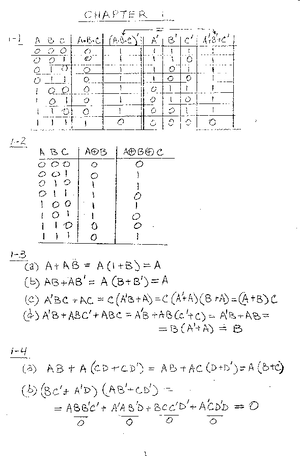 CHAPTER 1
1-1
A B C A·B·C (A·B·C)' A' B' C' A'+B'+C'
0 0 0 0 1 1 1 1 1
0 0 1 0 1 1 1 0 1
0 1 0 0 1 1 0 1 1
0 1 1 0 1 1 0 0 1
1 0 0 0 1 0 1 1 1
1 0 1 0 1 0 1 0 1
1 1 0 0 1 0 0 1 1
1 1 1 1 0 0 0 0 0
1-2
A B C A⊕B A⊕B⊕C
0 0 0 0 0
0 0 1 0 1
0 1 0 1 1
0 1 1 1 0
1 0 0 1 1
1 0 1 1 0
1 1 0 0 0
1 1 1 0 1
1-3
(a) A+AB = A(1+B)=A
(b) AB+AB' = A(B+B')=A
(c) A'BC+AC = C(A'B+A)=C(A'+A)(B+A)=(A+B)C
(d) A'B+ABC'+ABC = A'B+AB(C'+C)= A'B+AB=
= B(A'+A) = B
1-4
(a) AB + A(CD+CD') = AB+AC(D+D')=A(B+C)
(b) (BC'+A'D)(AB'+CD') =
= ABB'C' + A'AB'D + BCC'D' + A'CD'D = 0
0 0 0 0
1